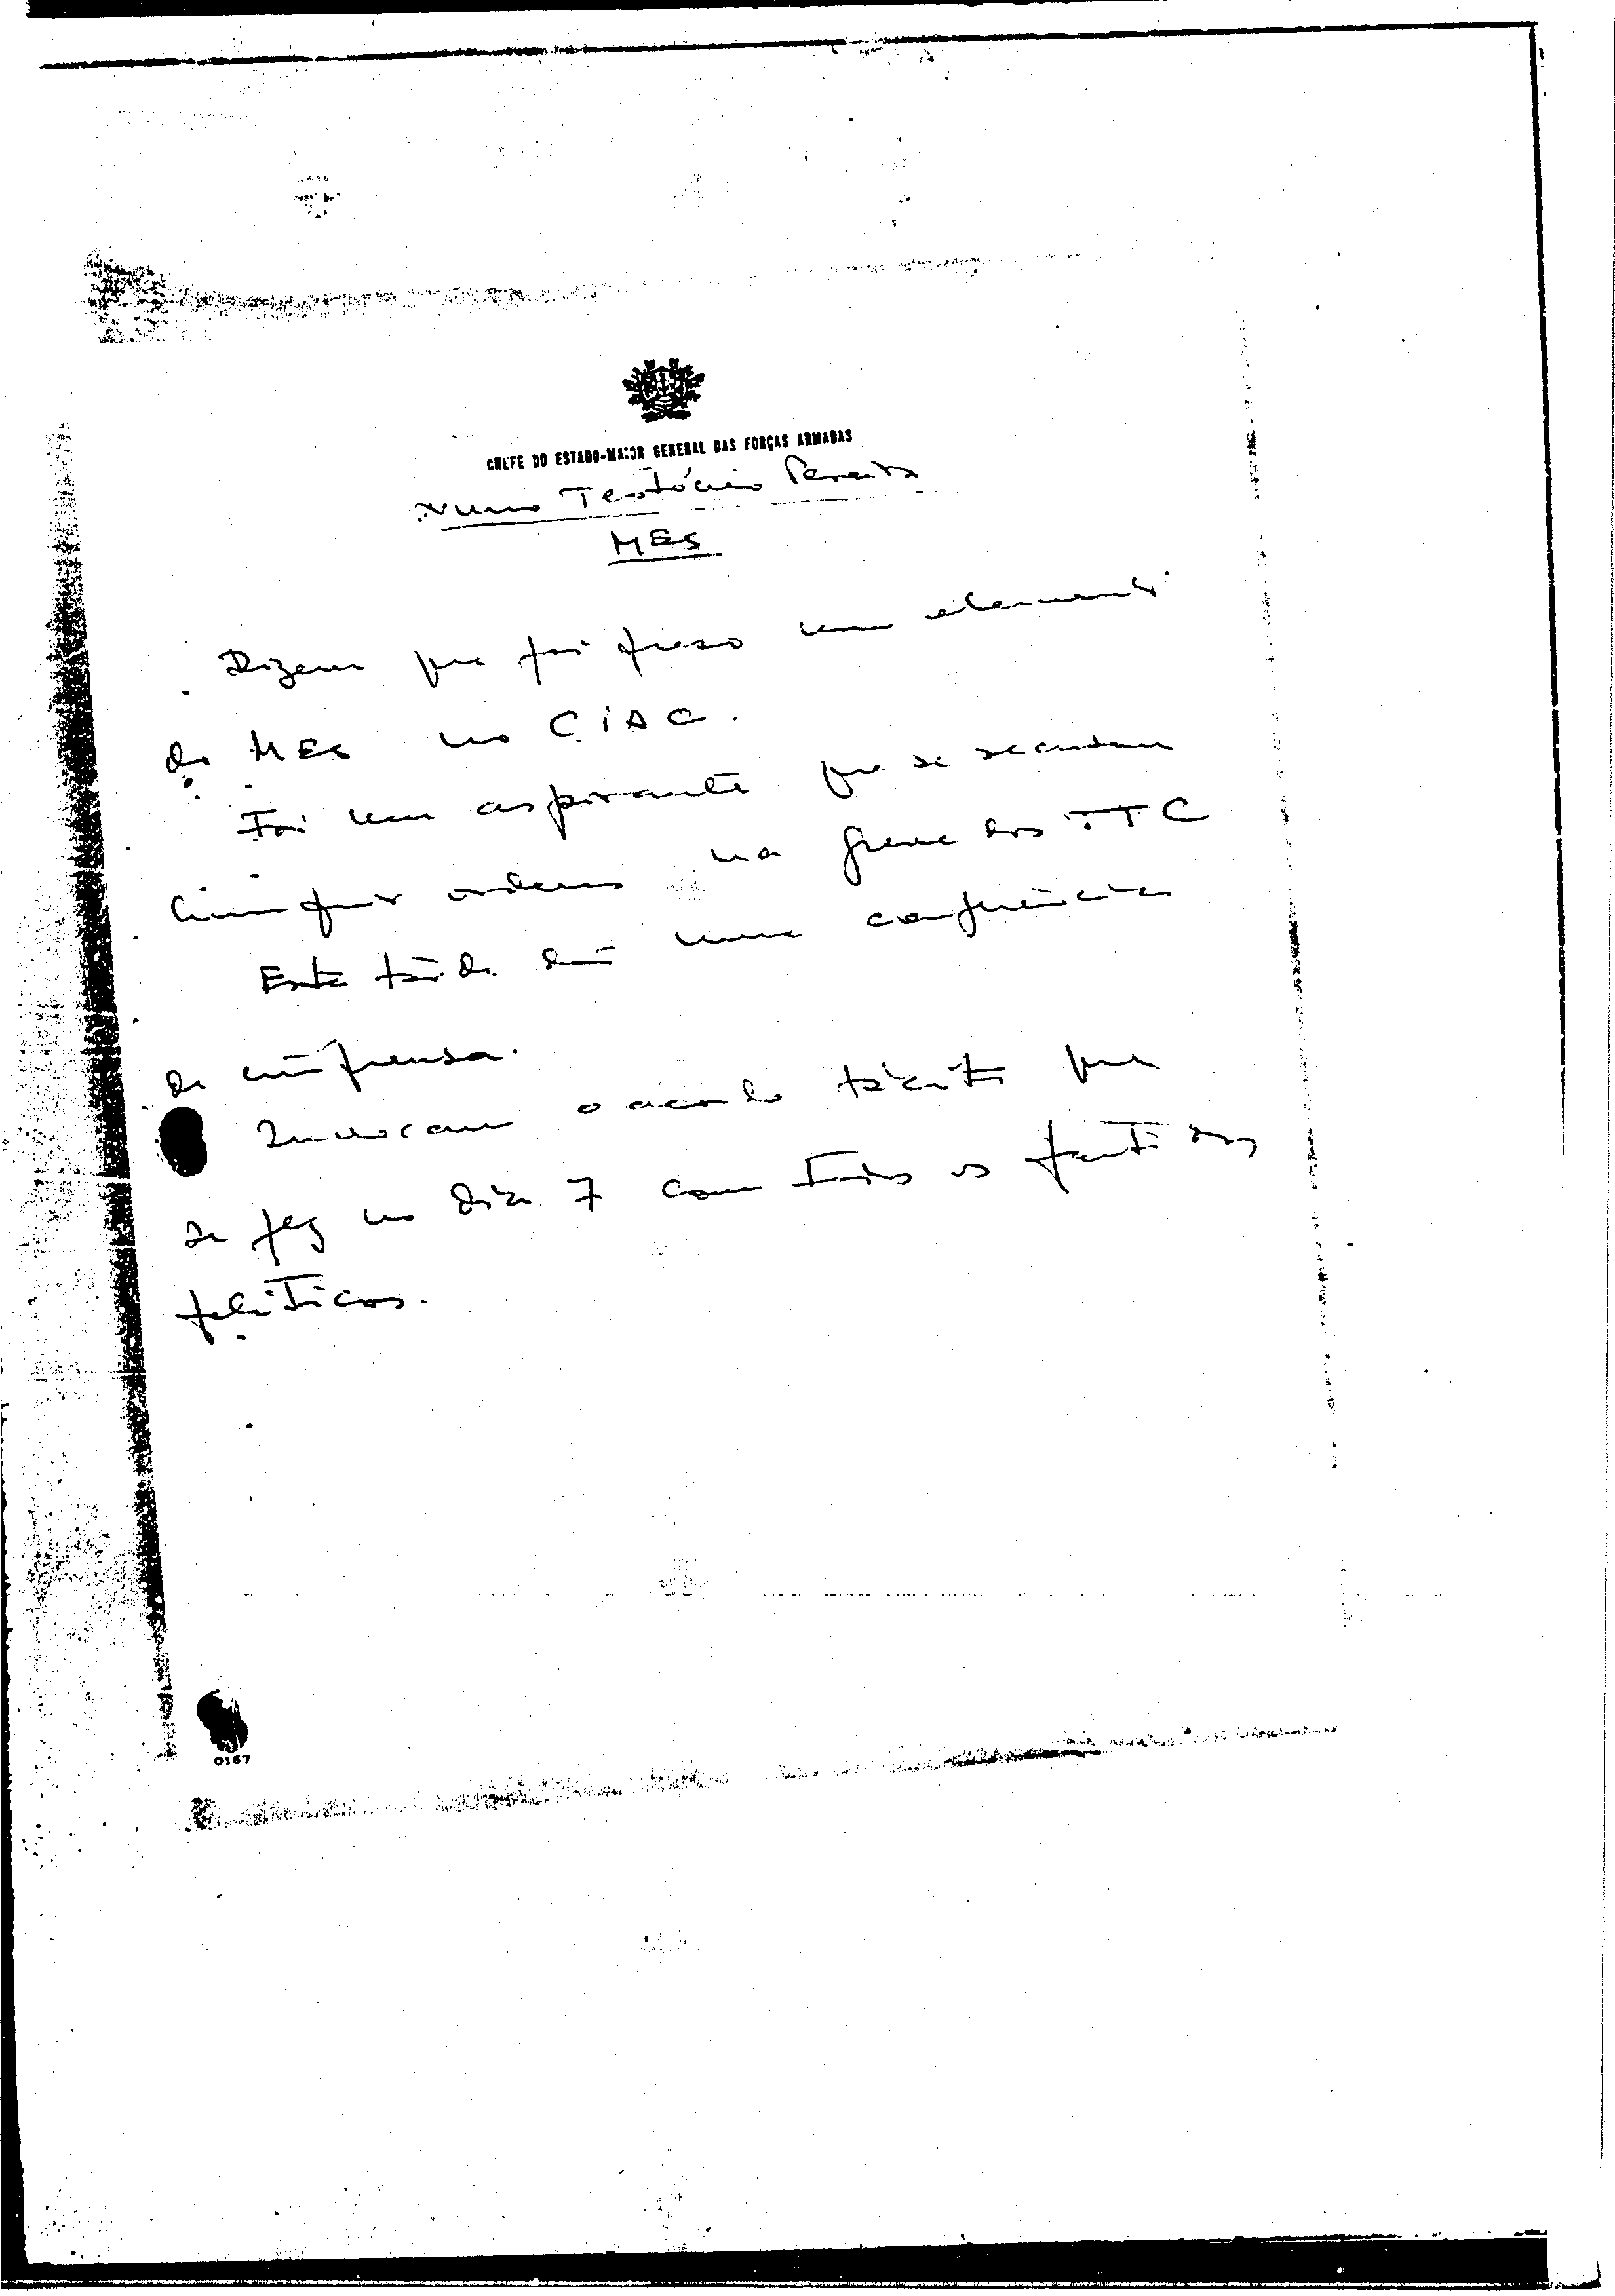 CHEFE DO ESTADO-MAIOR GENERAL DAS FORÇAS ARMADAS
Nuno Teotónio Pereira
MES
Dizem que foi preso um elemento
do MES no CIAC.
Foi um aspirante que se recusou
cumprir ordens na greve dos TTC
Esta tarde dão uma conferência
de imprensa.
Invocam o acordo tácito que
se fez no dia 7 com todos os partidos
políticos.
0167